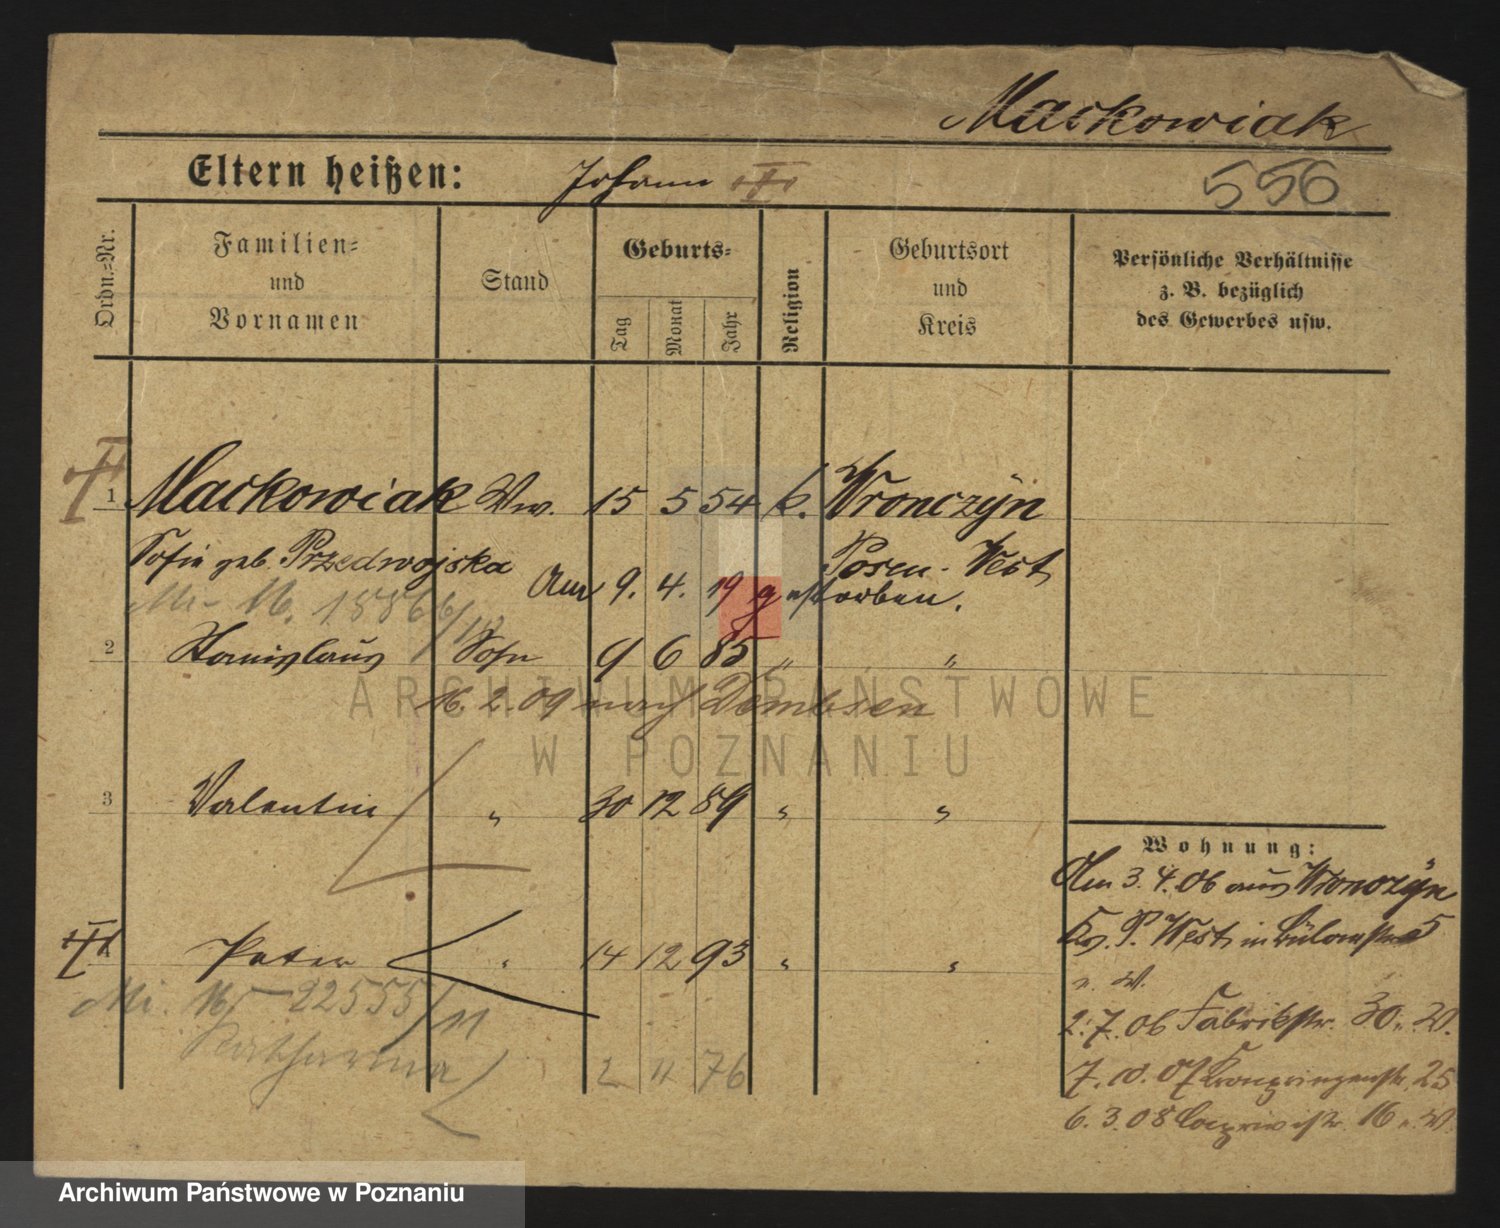 Mackowiak
Eltern heißen: Johann
556
Ordn.=Nr.
Familien=
und
Vornamen
Stand
Geburts=
Tag
Monat
Jahr
Religion
Geburtsort
und
Kreis
Persönliche Verhältnisse
z. B. bezüglich
des Gewerbes usw.
1 Mackowiak Ww. 15 5 54 k. Wronczÿn
Sofie geb. Przedwojska Posen-West
Am 9. 4. 19 gestorben.
2 Stanislaus Sohn 9 6 85 " "
16. 2. 09 nach Dembsen
ARCHIWUM PAŃSTWOWE
W POZNANIU
3 Valentin " 30 12 89 " "
Peter " 14 12 93 " "
Mi. 16, 22555/11
Katharina 2 11 76
Wohnung:
Am 3. 4. 06 aus Wronczÿn
Kr. P. West in Bülowstr. 5
n. W.
2. 7. 06 Fabrikstr. 30 n. W.
7. 10. 07 Kronprinzenstr. 25
6. 3. 08 16 n. W.
Archiwum Państwowe w Poznaniu